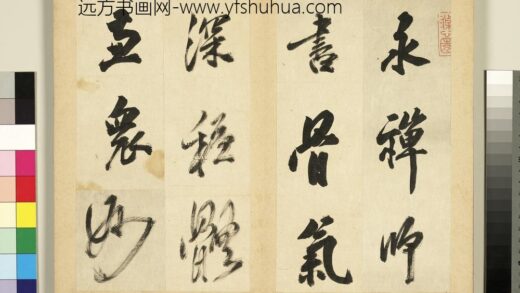 远方书画网-www.yfshuhua.com
永禅师
書骨氣
深穏體
兼衆妙